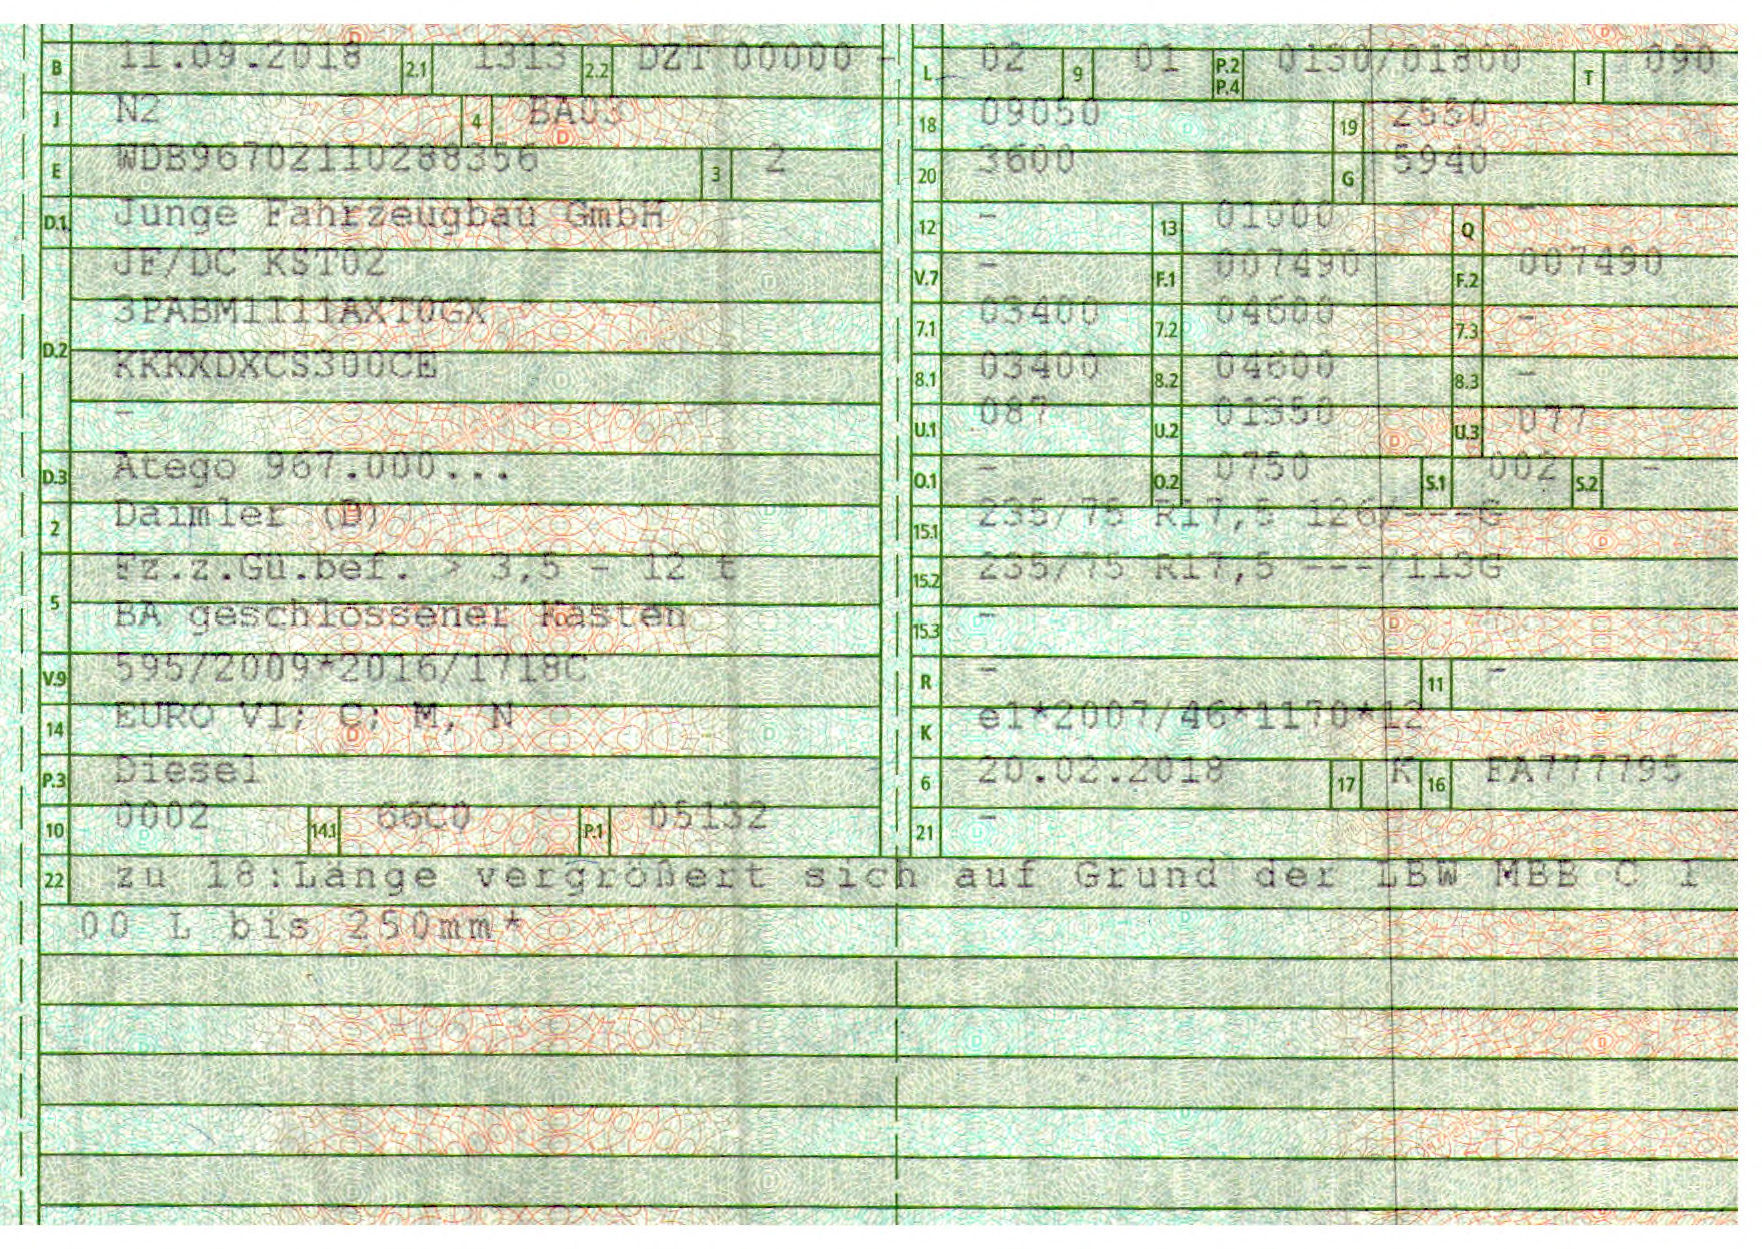 B 11.09.2018 2.1 1313 2.2 DZT 00000 -
J N2 4 BA03
E WDB96702110288356 3 2
D.1 Junge Fahrzeugbau GmbH
JF/DC KST02
3PABM1111AXT0GX
D.2 KKKXDXCS300CE
-
D.3 Atego 967.000...
2 Daimler (D)
Fz.z.Gü.bef. > 3,5 - 12 t
5 BA geschlossener Kasten
V.9 595/2009*2016/1718C
14 EURO VI; C; M, N
P.3 Diesel
10 0002 14.1 66C0 P.1 05132
L 02 9 01 P.2 P.4 0130/01800 T 090
18 09050 19 2550
20 3600 G 5940
12 - 13 01000 Q -
V.7 - F.1 007490 F.2 007490
7.1 03400 7.2 04600 7.3 -
8.1 03400 8.2 04600 8.3 -
U.1 087 U.2 01350 U.3 077
O.1 - O.2 0750 S.1 002 S.2 -
15.1 235/75 R17,5 126/---G
15.2 235/75 R17,5 ---/113G
15.3 -
R - 11 -
K e1*2007/46*1170*12
6 20.02.2018 17 K 16 FA777795
21 -
22 zu 18:Länge vergrößert sich auf Grund der LBW MBB C 1
00 L bis 250mm*